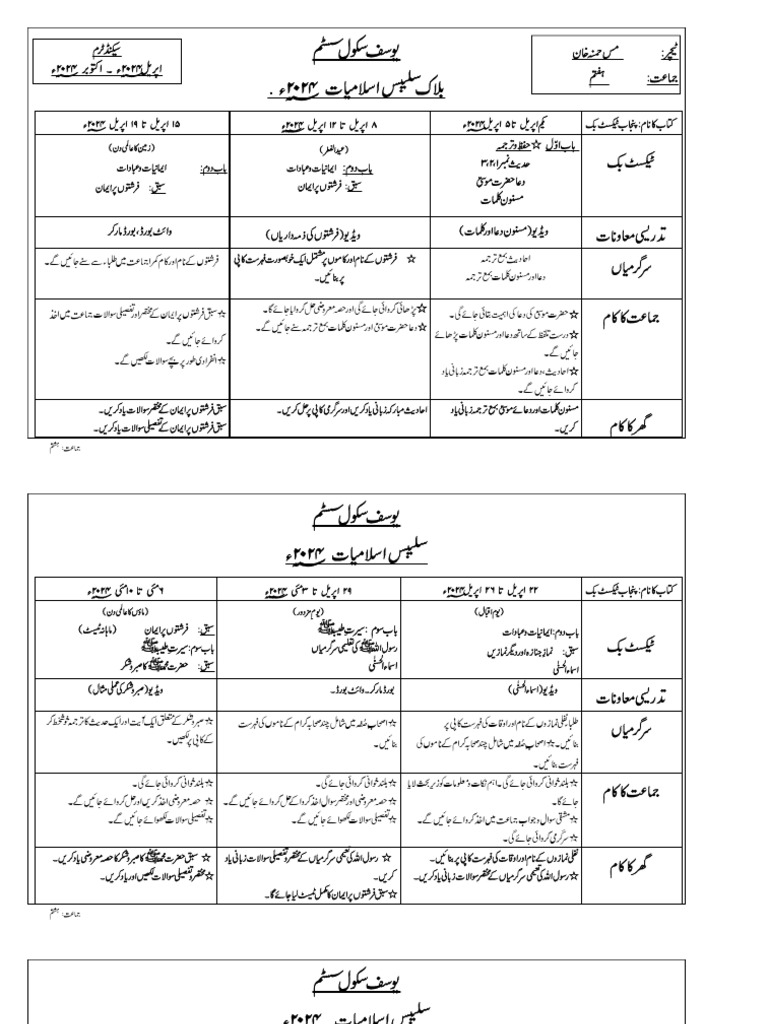 یوسف سکول سسٹم
ٹیچر: مس حمنہ خان
جماعت: ہفتم
سیکنڈ ٹرم
اپریل ۲۰۲۴ء ۔ اکتوبر ۲۰۲۴ء
بلاک سلیبس اسلامیات ۲۰۲۴ء .
کتاب کا نام: پنجاب ٹیکسٹ بک
یکم اپریل تا ۵ اپریل ۲۰۲۴ء
۸ اپریل تا ۱۲ اپریل ۲۰۲۴ء
۱۵ اپریل تا ۱۹ اپریل ۲۰۲۴ء
ٹیکسٹ بک
باب اوّل ☆ حفظ و ترجمہ
حدیث نمبر ۳،۲،۱
دعا حضرت موسیٰؑ
مسنون کلمات
(عید الفطر)
باب دوم: ایمانیات و عبادات
سبق: فرشتوں پر ایمان
(زمین کا عالمی دن)
باب دوم: ایمانیات و عبادات
سبق: فرشتوں پر ایمان
تدریسی معاونات
ویڈیو (مسنون دعا اور کلمات)
ویڈیو (فرشتوں کی ذمہ داریاں)
وائٹ بورڈ، بورڈ مارکر
سرگرمیاں
احادیث بمع ترجمہ
دعا اور مسنون کلمات بمع ترجمہ
☆ فرشتوں کے نام اور کاموں پر مشتمل ایک خوبصورت فہرست کاپی
پر بنائیں۔
فرشتوں کے نام اور کام کمرا جماعت میں طلباء سے سنے جائیں گے۔
جماعت کا کام
☆ حضرت موسیٰؑ کی دعا کی اہمیت بتائی جائے گی۔
☆ درست تلفظ کے ساتھ دعا اور مسنون کلمات پڑھائے
جائیں گے۔
☆ احادیث، دعا اور مسنون کلمات بمع ترجمہ زبانی یاد
کروائے جائیں گے۔
☆ پڑھائی کروائی جائے گی اور حصہ معروضی حل کروایا جائے گا۔
☆ دعا حضرت موسیٰؑ اور مسنون کلمات بمع ترجمہ سنے جائیں گے۔
☆ سبق فرشتوں پر ایمان کے مختصر اور تفصیلی سوالات جماعت میں اخذ
کروائے جائیں گے۔
☆ انفرادی طور پر بچے سوالات لکھیں گے۔
گھر کا کام
مسنون کلمات اور دعائے موسیٰؑ بمع ترجمہ زبانی یاد
کریں۔
احادیث مبارکہ زبانی یاد کریں اور سرگرمی کاپی پر حل کریں۔
سبق فرشتوں پر ایمان کے مختصر سوالات یاد کریں۔
سبق فرشتوں پر ایمان کے تفصیلی سوالات یاد کریں۔
جماعت: ہفتم
یوسف سکول سسٹم
سلیبس اسلامیات ۲۰۲۴ء
کتاب کا نام: پنجاب ٹیکسٹ بک
۲۲ اپریل تا ۲۶ اپریل ۲۰۲۴ء
۲۹ اپریل تا ۳ مئی ۲۰۲۴ء
۶ مئی تا ۱۰ مئی ۲۰۲۴ء
ٹیکسٹ بک
(یوم اقبال)
باب دوم: ایمانیات و عبادات
سبق: نماز جنازہ اور دیگر نمازیں
اسماء الحسنٰی
(یوم مزدور)
باب سوم: سیرت طیبہ ﷺ
رسول اللہ ﷺ کی تعلیمی سرگرمیاں
اسماء الحسنٰی
(ماؤں کا عالمی دن)
سبق: فرشتوں پر ایمان (ماہانہ ٹیسٹ)
باب سوم: سیرت طیبہ ﷺ
سبق: حضرت محمد ﷺ کا صبر و شکر
تدریسی معاونات
ویڈیو (اسماء الحسنٰی)
بورڈ مارکر۔ وائٹ بورڈ۔
ویڈیو (صبر و شکر کی عملی مثال)
سرگرمیاں
طلباء نفلی نمازوں کے نام اور اوقات کی فہرست کاپی پر
بنائیں۔ ☆ اصحاب صفہ میں شامل چند صحابہ کرام کے ناموں کی
فہرست بنائیں۔
☆ اصحاب صفہ میں شامل چند صحابہ کرام کے ناموں کی فہرست
بنائیں۔
☆ صبر و شکر کے متعلق ایک آیت اور ایک حدیث کا ترجمہ خوشخط کر
کے کاپی پر لکھیں۔
جماعت کا کام
☆ بلند خوانی کروائی جائے گی۔ اہم نکات و معلومات کو زیر بحث لایا
جائے گا۔
☆ مشقی سوال و جواب جماعت میں اخذ کروائے جائیں گے۔
☆ سرگرمی کروائی جائے گی۔
☆ بلند خوانی کروائی جائے گی۔
☆ حصہ معروضی اور مختصر سوال اخذ کروا کے حل کروائے جائیں گے۔
☆ تفصیلی سوالات لکھوائے جائیں گے۔
☆ بلند خوانی کروائی جائے گی۔
☆ حصہ معروضی اخذ کریں اور حل کروائے جائیں گے۔
☆ تفصیلی سوالات لکھوائے جائیں گے۔
گھر کا کام
نفلی نمازوں کے نام اور اوقات کی فہرست کاپی پر بنائیں۔
☆ رسول اللہ کی تعلیمی سرگرمیاں کے مختصر سوالات زبانی یاد کریں۔
☆ رسول اللہ کی تعلیمی سرگرمیاں کے مختصر تفصیلی سوالات زبانی یاد
کریں۔
☆ سبق فرشتوں پر ایمان کا مکمل ٹیسٹ لیا جائے گا۔
☆ سبق حضرت محمد ﷺ کا صبر و شکر کا حصہ معروضی یاد کریں۔
☆ مختصر و تفصیلی سوالات لکھیں اور یاد کریں۔
جماعت: ہفتم
یوسف سکول سسٹم
سلیبس اسلامیات ۲۰۲۴ء